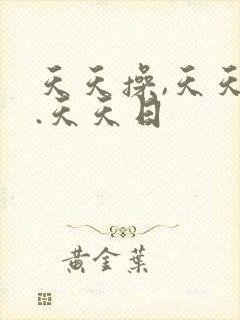 天天操,天天
.天天日
黄金葉